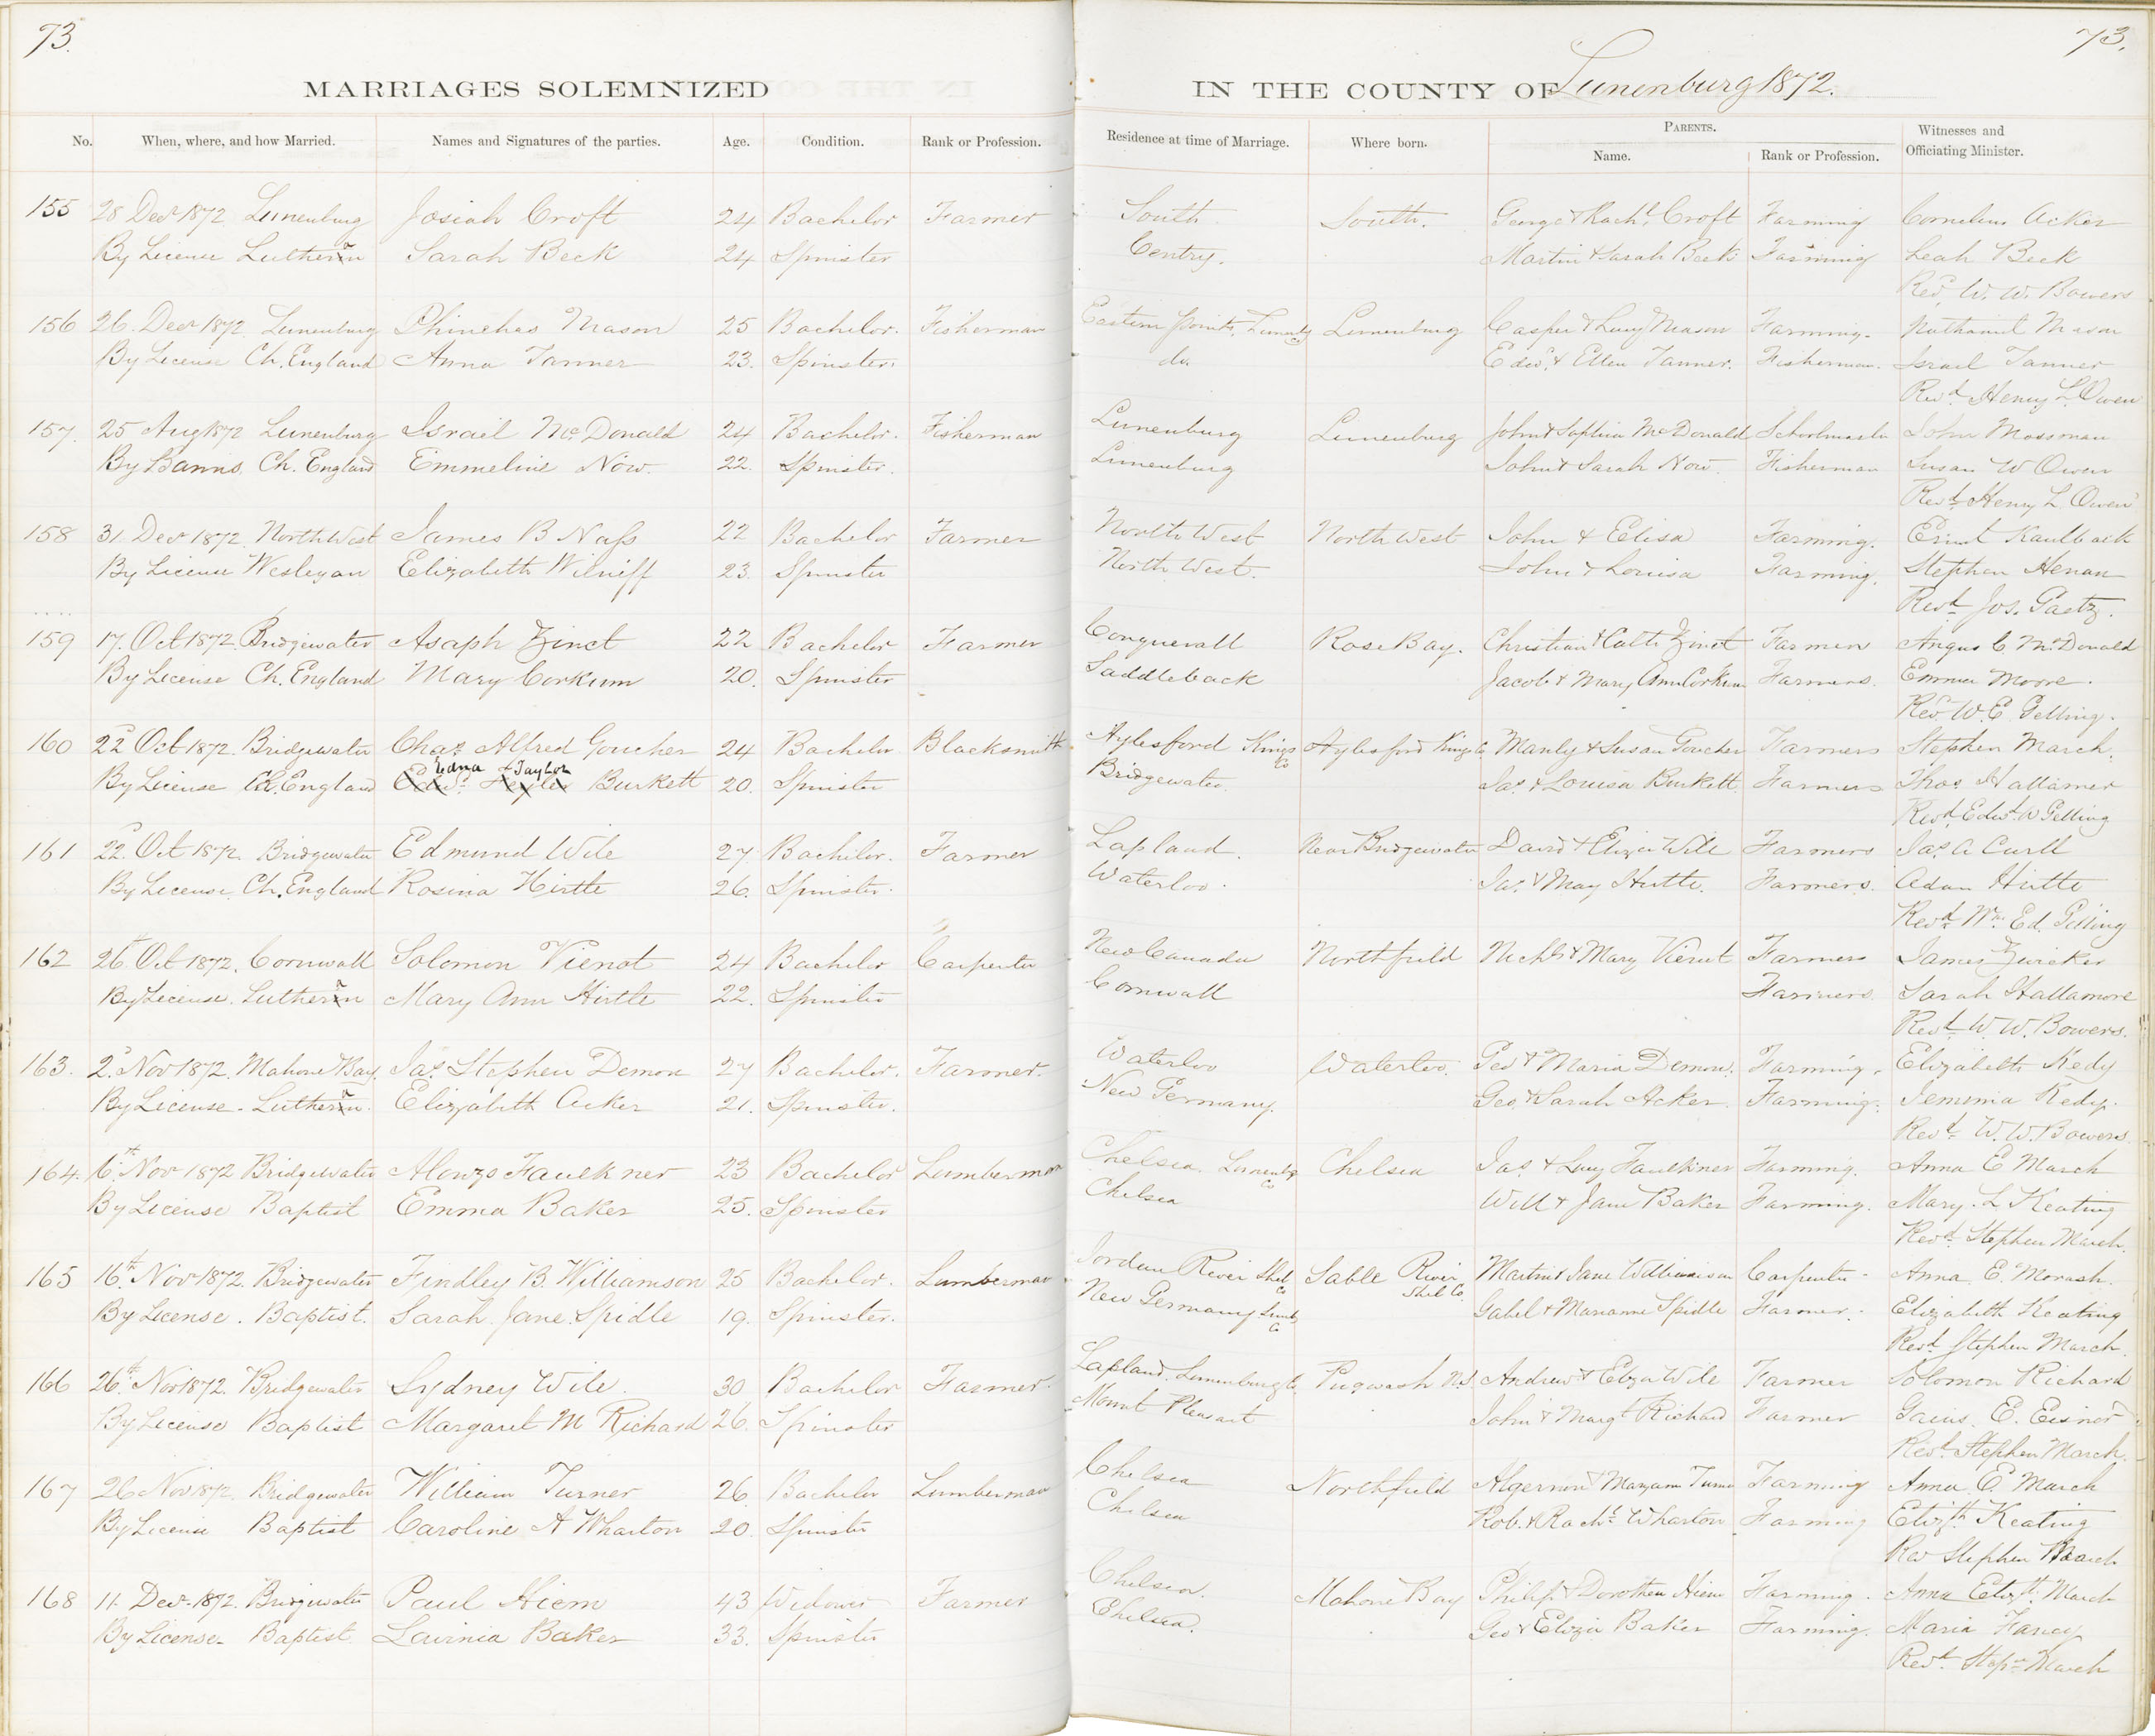 73.
MARRIAGES SOLEMNIZED
No. When, where, and how Married. Names and Signatures of the parties. Age. Condition. Rank or Profession.
155 28 Decr 1872 Lunenburg Josiah Croft 24 Bachelor Farmer
By License Lutheran Sarah Beck 24 Spinster
156 26. Decr 1872 Lunenburg Phinehas Mason 25 Bachelor. Fisherman
By License Ch. England Anna Tanner 23. Spinster.
157. 25 Aug 1872 Lunenburg Israel McDonald 24 Bachelor. Fisherman
By Banns. Ch. England Emmeline Now. 22. Spinster.
158 31. Decr 1872. North West James B Nass 22 Bachelor Farmer
By License Wesleyan Elizabeth Wilniff 23. Spinster
159 17. Oct 1872. Bridgewater Asaph Zinct 22 Bachelor Farmer
By License Ch. England Mary Corkum 20. Spinster
160 22d Oct 1872. Bridgewater Chas. Alfred Goucher 24 Bachelor Blacksmith
Edna Taylor
By License Ch. England Burkett 20. Spinster
161 22d Oct 1872. Bridgewater Edmund Wile 27. Bachelor. Farmer
By License. Ch. England Rosina Hirtle 26. Spinster.
162 26th Oct 1872. Cornwall Solomon Vienot 24 Bachelor Carpenter
By License. Lutheran Mary Ann Hirtle 22. Spinster
163. 2d Nov 1872. Mahone Bay. Jas. Stephen Demon 27 Bachelor. Farmer.
By License. Lutheran. Elizabeth Acker 21. Spinster.
164. 6th Nov 1872 Bridgewater Alonzo Faulkner 23 Bachelor Lumberman
By License Baptist Emma Baker 25. Spinster
165 16th Nov 1872. Bridgewater Findley B. Williamson 25 Bachelor. Lumberman
By License. Baptist. Sarah Jane Spidle 19. Spinster.
166 26th Nov 1872. Bridgewater Sydney Wile. 30 Bachelor Farmer.
By License Baptist Margaret M Richard 26. Spinster
167 26 Nov 1872. Bridgewater William Turner 26. Bachelor Lumberman
By License Baptist Caroline A Wharton 20. Spinster
168 11. Decr 1872. Bridgewater Paul Hiem 43 Widower Farmer
By License. Baptist Lavinia Baker 33. Spinster
73.
IN THE COUNTY OF Lunenburg 1872.
Residence at time of Marriage. Where born. PARENTS. Witnesses and
Name. Rank or Profession. Officiating Minister.
South South. George & Rachl. Croft Farming Cornelius Acker
Centry. Martin & Sarah Beck Farming Leah Beck
Revd. W. W. Bowers
Eastern Points, Lunenbg Co Lunenburg Casper & Lucy Mason Farming. Nathaniel Mason
do. Edwd. & Ellen Tanner. Fisherman. Israel Tanner
Revd. Henry L. Owen
Lunenburg Lunenburg John & Sophia McDonald Schoolmaster John Mossman
Lunenburg John & Sarah Now. Fisherman Susan W Owen
Revd. Henry L. Owen
North West North West John & Elisa Farming. Ernst Kaulback
North West. John & Louisa Farming. Stephen Henan
Revd. Jos. Gaetz.
Conquerall Rose Bay. Christian & Cath Zinct Farmers Angus C McDonald
Saddleback Jacob & Mary Ann Corkum Farmers. Emma Moore.
Revd. W. E. Gelling.
Aylesford Kings Co Aylesford Kings Co. Manly & Susan Goucher Farmers Stephen March.
Bridgewater. Jas. & Louisa Burkett Farmers Thos. Hallamer
Revd. Edwd. W Gelling
Lapland. Near Bridgewater David & Eliza Wile Farmers Jas. A Curll
Waterloo. Jas. & May Hirtle. Farmers. Adam Hirtle
Revd. Wm. Ed. Gelling
New Canada Northfield Nichs. & Mary Vienot Farmers James Zwicker
Cornwall Farmers. Sarah Hallamore
Revd. W. W. Bowers.
Waterloo Waterloo. Geo & Maria Demon. Farming. Elizabeth Kedy
New Germany. Geo. & Sarah Acker. Farming. Jemima Kedy.
Revd. W. W. Bowers.
Chelsea. Lunenbg Co Chelsea Jas. & Lucy Faulkner Farming. Anna E March
Chelsea Will & Jane Baker Farming. Mary. L Keating
Revd. Stephen March.
Jordan River Shel Co Sable River Shel Co. Martin & Jane Williamson Carpenter. Anna. E. Morash.
New Germany Lunbg Co Gabel & Marianne Spidle Farmer. Elizabeth Keating
Revd. Stephen March.
Lapland. Lunenburg Co. Pugwash N.S. Andrew & Eliza Wile Farmer Solomon Richard
Mount Pleasant John & Margt. Richard Farmer Gaius. E. Eisnor
Revd. Stephen March.
Chelsea Northfield Algernon & Maryann Turner Farming Anna. E. March
Chelsea Rob. & Rachl. Wharton Farming Elizth. Keating
Rev Stephen March
Chelsea. Mahone Bay Philip & Dorothea Hiem Farming. Anna Elizth. March
Chelsea. Geo & Eliza Baker Farming. Maria Fancy
Revd. Stepn. March